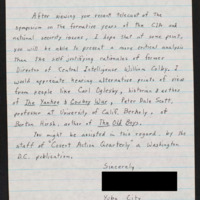 After viewing your recent telecast of the
symposium on the formative years of the CIA and
national security issues, I hope that at some point,
you will be able to present a more critical analysis
than the self-justifying rationales of former
Director of Central Intelligence William Colby. I
would appreciate hearing alternative points of view
from people like Carl Oglesby, historian & author
of The Yankee & Cowboy War, Peter Dale Scott,
professor at University of Calif. Berkeley, or
Burton Hersh, author of The Old Boys.
You might be assisted in this regard, by the
staff of "Covert Action Quarterly" a Washington
D.C. publication.
Sincerely
Yuba City